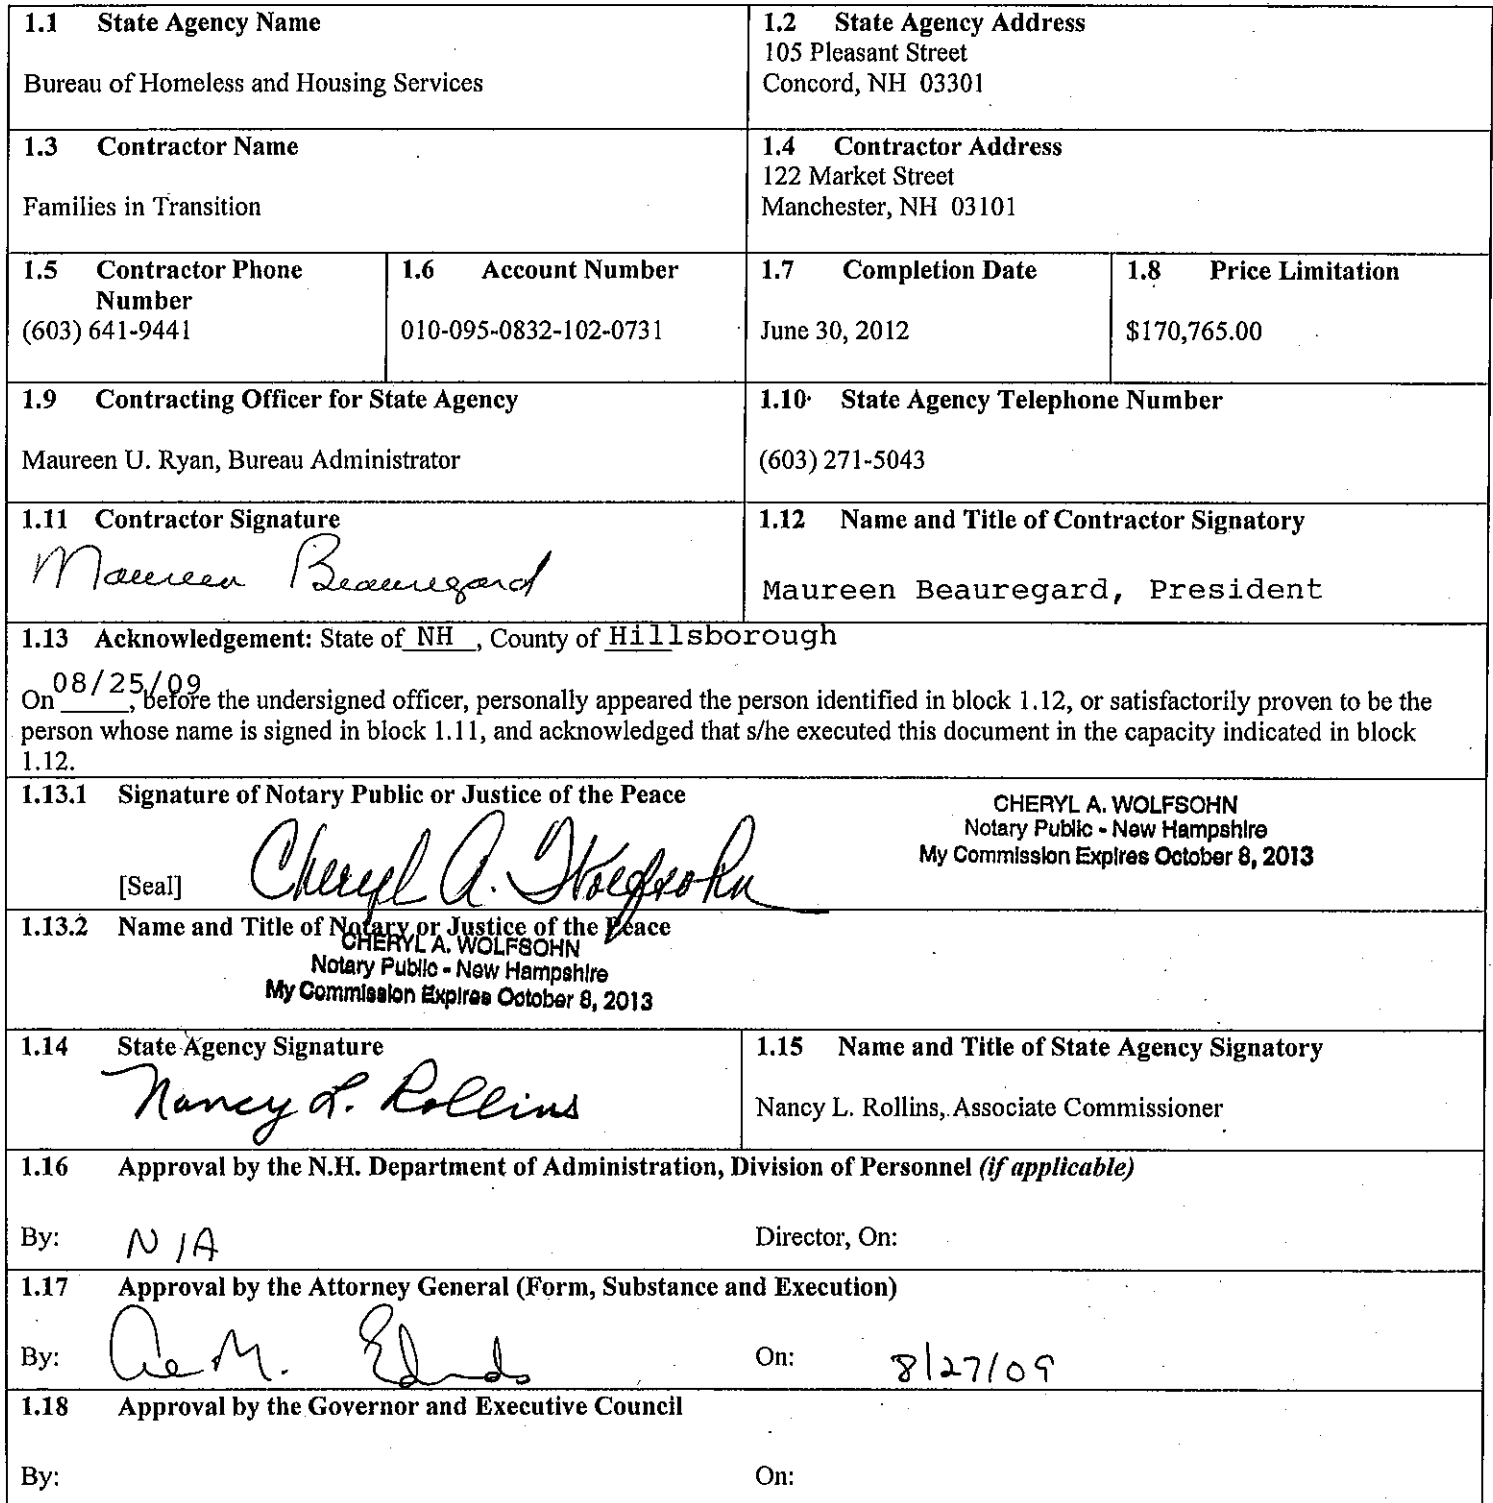 1.1 State Agency Name
Bureau of Homeless and Housing Services
1.2 State Agency Address
105 Pleasant Street
Concord, NH 03301
1.3 Contractor Name
Families in Transition
1.4 Contractor Address
122 Market Street
Manchester, NH 03101
1.5 Contractor Phone
Number
(603) 641-9441
1.6 Account Number
010-095-0832-102-0731
1.7 Completion Date
June 30, 2012
1.8 Price Limitation
$170,765.00
1.9 Contracting Officer for State Agency
Maureen U. Ryan, Bureau Administrator
1.10 State Agency Telephone Number
(603) 271-5043
1.11 Contractor Signature
Maureen Beauregard
1.12 Name and Title of Contractor Signatory
Maureen Beauregard, President
1.13 Acknowledgement: State of NH, County of Hillsborough
On 08/25/09, before the undersigned officer, personally appeared the person identified in block 1.12, or satisfactorily proven to be the
person whose name is signed in block 1.11, and acknowledged that s/he executed this document in the capacity indicated in block
1.12.
1.13.1 Signature of Notary Public or Justice of the Peace
[Seal] Cheryl A. Wolfsohn
CHERYL A. WOLFSOHN
Notary Public - New Hampshire
My Commission Expires October 8, 2013
1.13.2 Name and Title of Notary or Justice of the Peace
CHERYL A. WOLFSOHN
Notary Public - New Hampshire
My Commission Expires October 8, 2013
1.14 State Agency Signature
Nancy L. Rollins
1.15 Name and Title of State Agency Signatory
Nancy L. Rollins, Associate Commissioner
1.16 Approval by the N.H. Department of Administration, Division of Personnel (if applicable)
By: N/A Director, On:
1.17 Approval by the Attorney General (Form, Substance and Execution)
By: M. On: 8/27/09
1.18 Approval by the Governor and Executive Council
By: On: